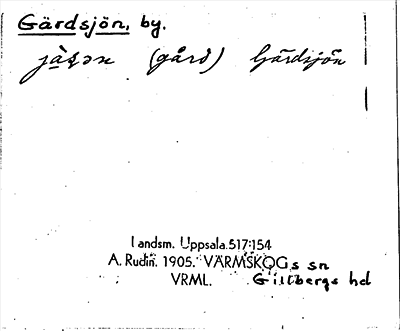 Gärdsjön, by.
(gård) Gärdsjön
Landsm. Uppsala.517:154
A. Rudin. 1905. VÄRMSKOGs sn
VRML. Gillbergs hd